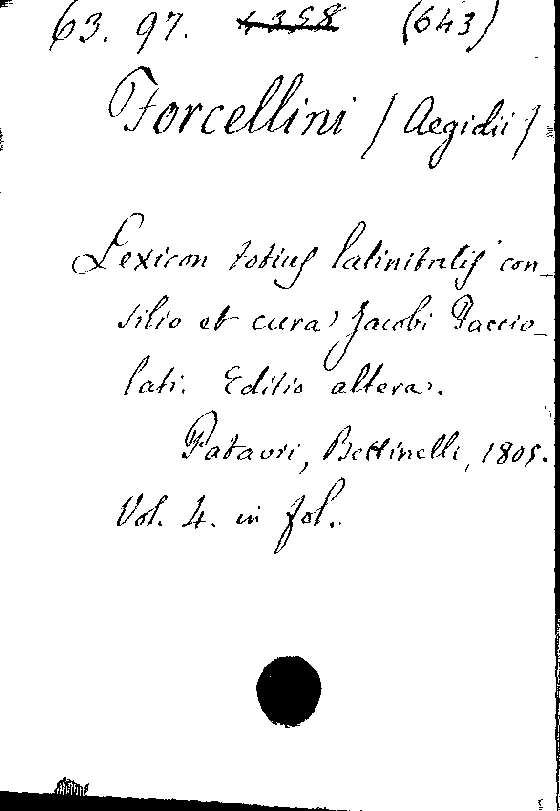 63. 97. 4358 (643)
Forcellini / Aegidii /
Lexicon totius latinitatis con_
silio et cura Jacobi Faccio_
lati. Editio altera.
Patavii, Bettinelli, 1805.
Vol. 4. in fol.